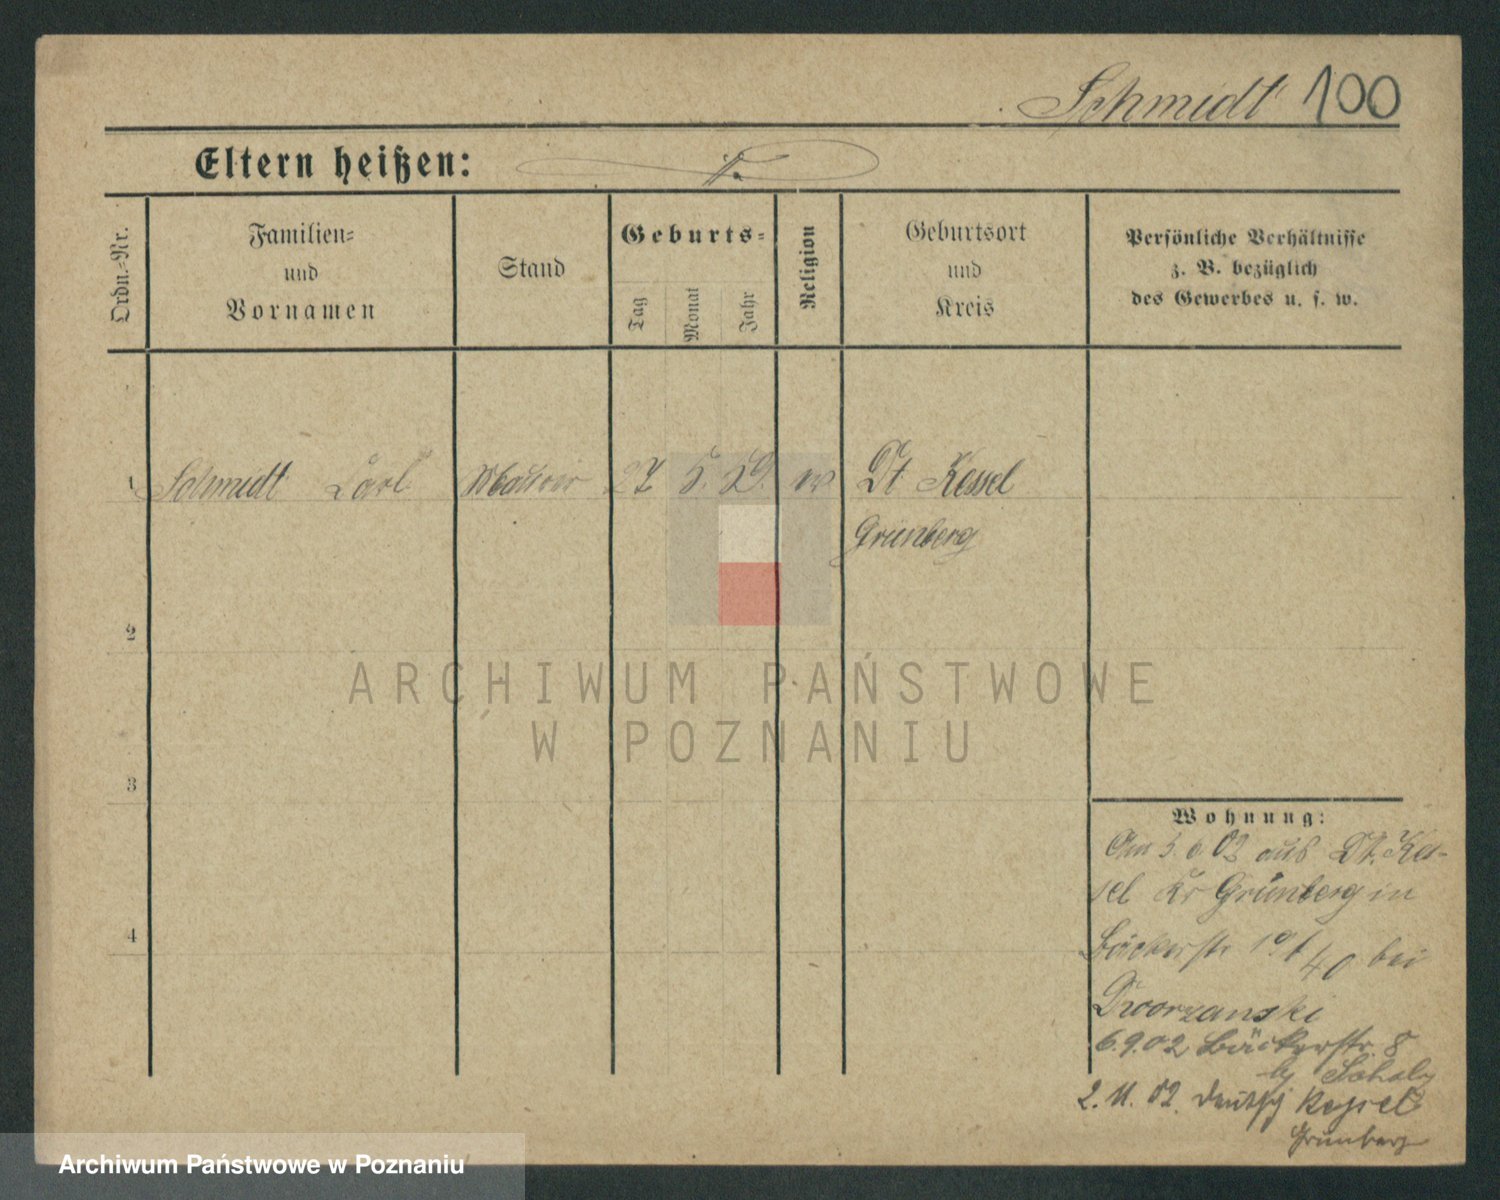 Schmidt 100
Eltern heißen:
Ordn.-Nr.
Familien-
und
Vornamen
Stand
Geburts-
Tag
Monat
Jahr
Religion
Geburtsort
und
Kreis
Persönliche Verhältnisse
z. B. bezüglich
des Gewerbes u. s. w.
1 Schmidt Carl 27 5. 59. Dt Kessel
Grünberg
2
ARCHIWUM PAŃSTWOWE
W POZNANIU
3
Wohnung:
Am 5. 6. 02 aus Dt. Kes-
sel Kr Grünberg in
Bäckerstr 40 bei
Dworzanski
6.9.02 Bäckerstr. 8
4
2. 11. 02. Deutsch Kessel
Grünberg
Archiwum Państwowe w Poznaniu